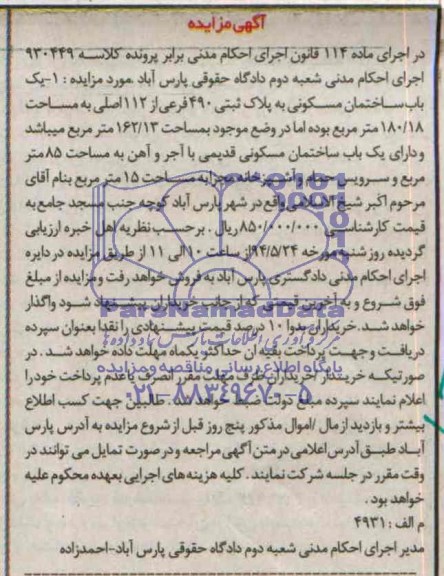 آگهی مزایده
در اجرای ماده ۱۱۴ قانون اجرای احکام مدنی برابر پرونده کلاسه ۹۳۰۴۴۹
اجرای احکام مدنی شعبه دوم دادگاه حقوقی پارس آباد مورد مزایده : ۱-یک
باب ساختمان مسکونی به پلاک ثبتی ۴۹۰ فرعی از ۱۱۲ اصلی به مساحت
۱۸۰/۱۸ متر مربع بوده اما در وضع موجود بمساحت ۱۶۲/۱۳ متر مربع میباشد
و دارای یک باب ساختمان مسکونی قدیمی با آجر و آهن به مساحت ۸۵ متر
مربع و سرویس حمام و آشپزخانه مجزا به مساحت ۱۵ متر مربع بنام آقای
مرحوم اکبر شیخ الاسلامی واقع در شهر پارس آباد کوچه جنب مسجد جامع به
قیمت کارشناسی ۸۵۰/۰۰۰/۰۰۰ ریال . برحسب نظریه اهل خبره ارزیابی
گردیده روز شنبه مورخه ۹۴/۵/۲۴ از ساعت ۱۰ الی ۱۱ از طریق مزایده در دایره
اجرای احکام مدنی دادگستری پارس آباد به فروش خواهد رفت و مزایده از مبلغ
فوق شروع و به آخرین قیمتی که از جانب خریداران پیشنهاد شود واگذار
خواهد شد. خریداران بدوا ۱۰ درصد قیمت پیشنهادی را نقدا بعنوان سپرده
دریافت و جهت پرداخت بقیه آن حداکثر یکماه مهلت داده خواهد شد . در
صورتیکه خریدار /خریداران ظرف مهلت مقرر انصراف یا عدم پرداخت خود را
اعلام نمایند سپرده مبلغ دولت ضبط خواهد شد . طالبین جهت کسب اطلاع
بیشتر و بازدید از مال /اموال مذکور پنج روز قبل از شروع مزایده به آدرس پارس
آباد طبق آدرس اعلامی در متن آگهی مراجعه و در صورت تمایل می توانند در
وقت مقرر در جلسه شرکت نمایند . کلیه هزینه های اجرایی بعهده محکوم علیه
خواهد بود .
م الف : ۴۹۳۱
مدیر اجرای احکام مدنی شعبه دوم دادگاه حقوقی پارس آباد-احمدزاده
ParsNamadData
مرکز فرآوری اطلاعات پارس نماد داده ها
پایگاه اطلاع رسانی مناقصه و مزایده
۰۲۱-۸۸۳۴۹۶۷۰-۵